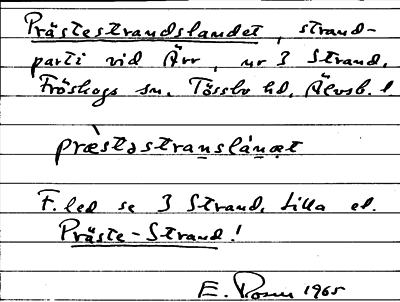 Prästestrandslandet, strand-
parti vid Ärr, nr 3 Strand,
Fröskogs sn. Tössbo hd, Älvsb. l
præ̀stəstranslánət
F.led se 3 Strand, Lilla el.
Präste-Strand!
E. Rosm 1965